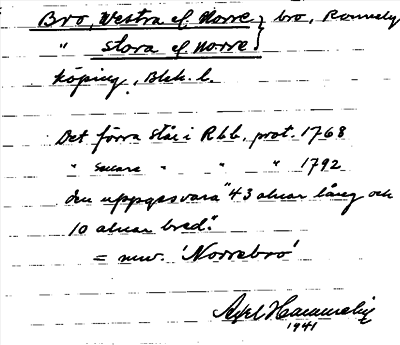 Bro, Westra el. Norre } bro, Ronneby
" Stora el. Norre }
köping, Blek. l.
Det förra står i Rbb. prot. 1768
" senare " " " 1792
den uppges vara "43 alnar lång och
10 alnar bred".
= nuv. 'Norrebro'
Axel
1941